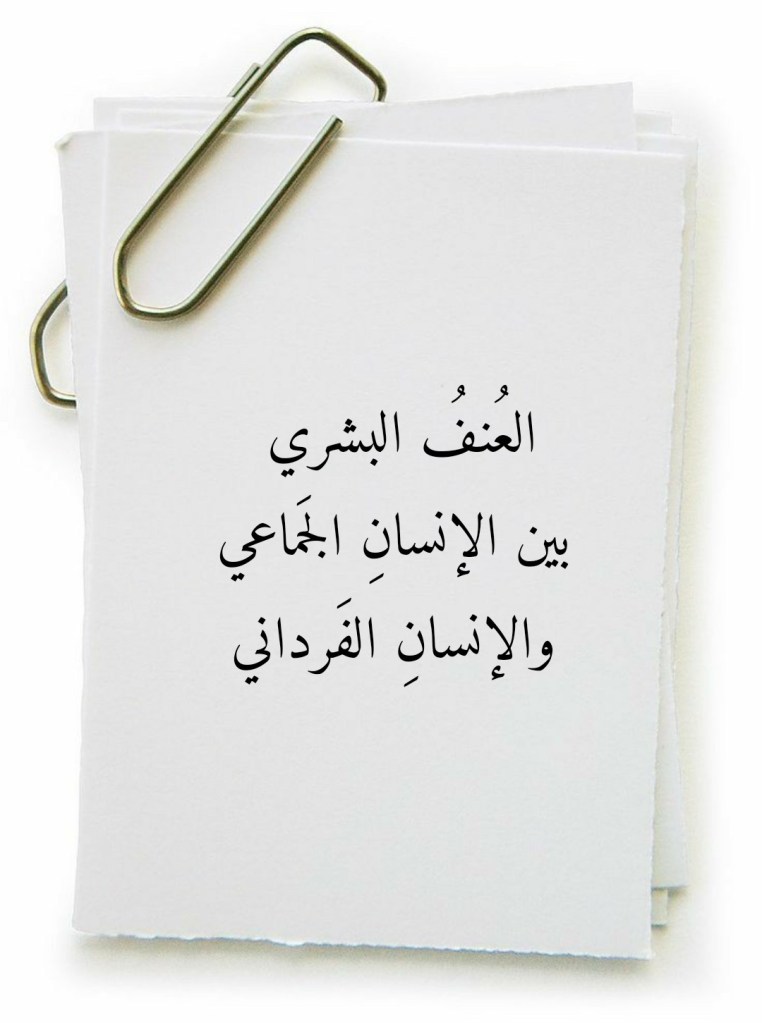 العُنفُ البشري
بين الإنسانِ الجَماعي
والإنسانِ الفَرداني